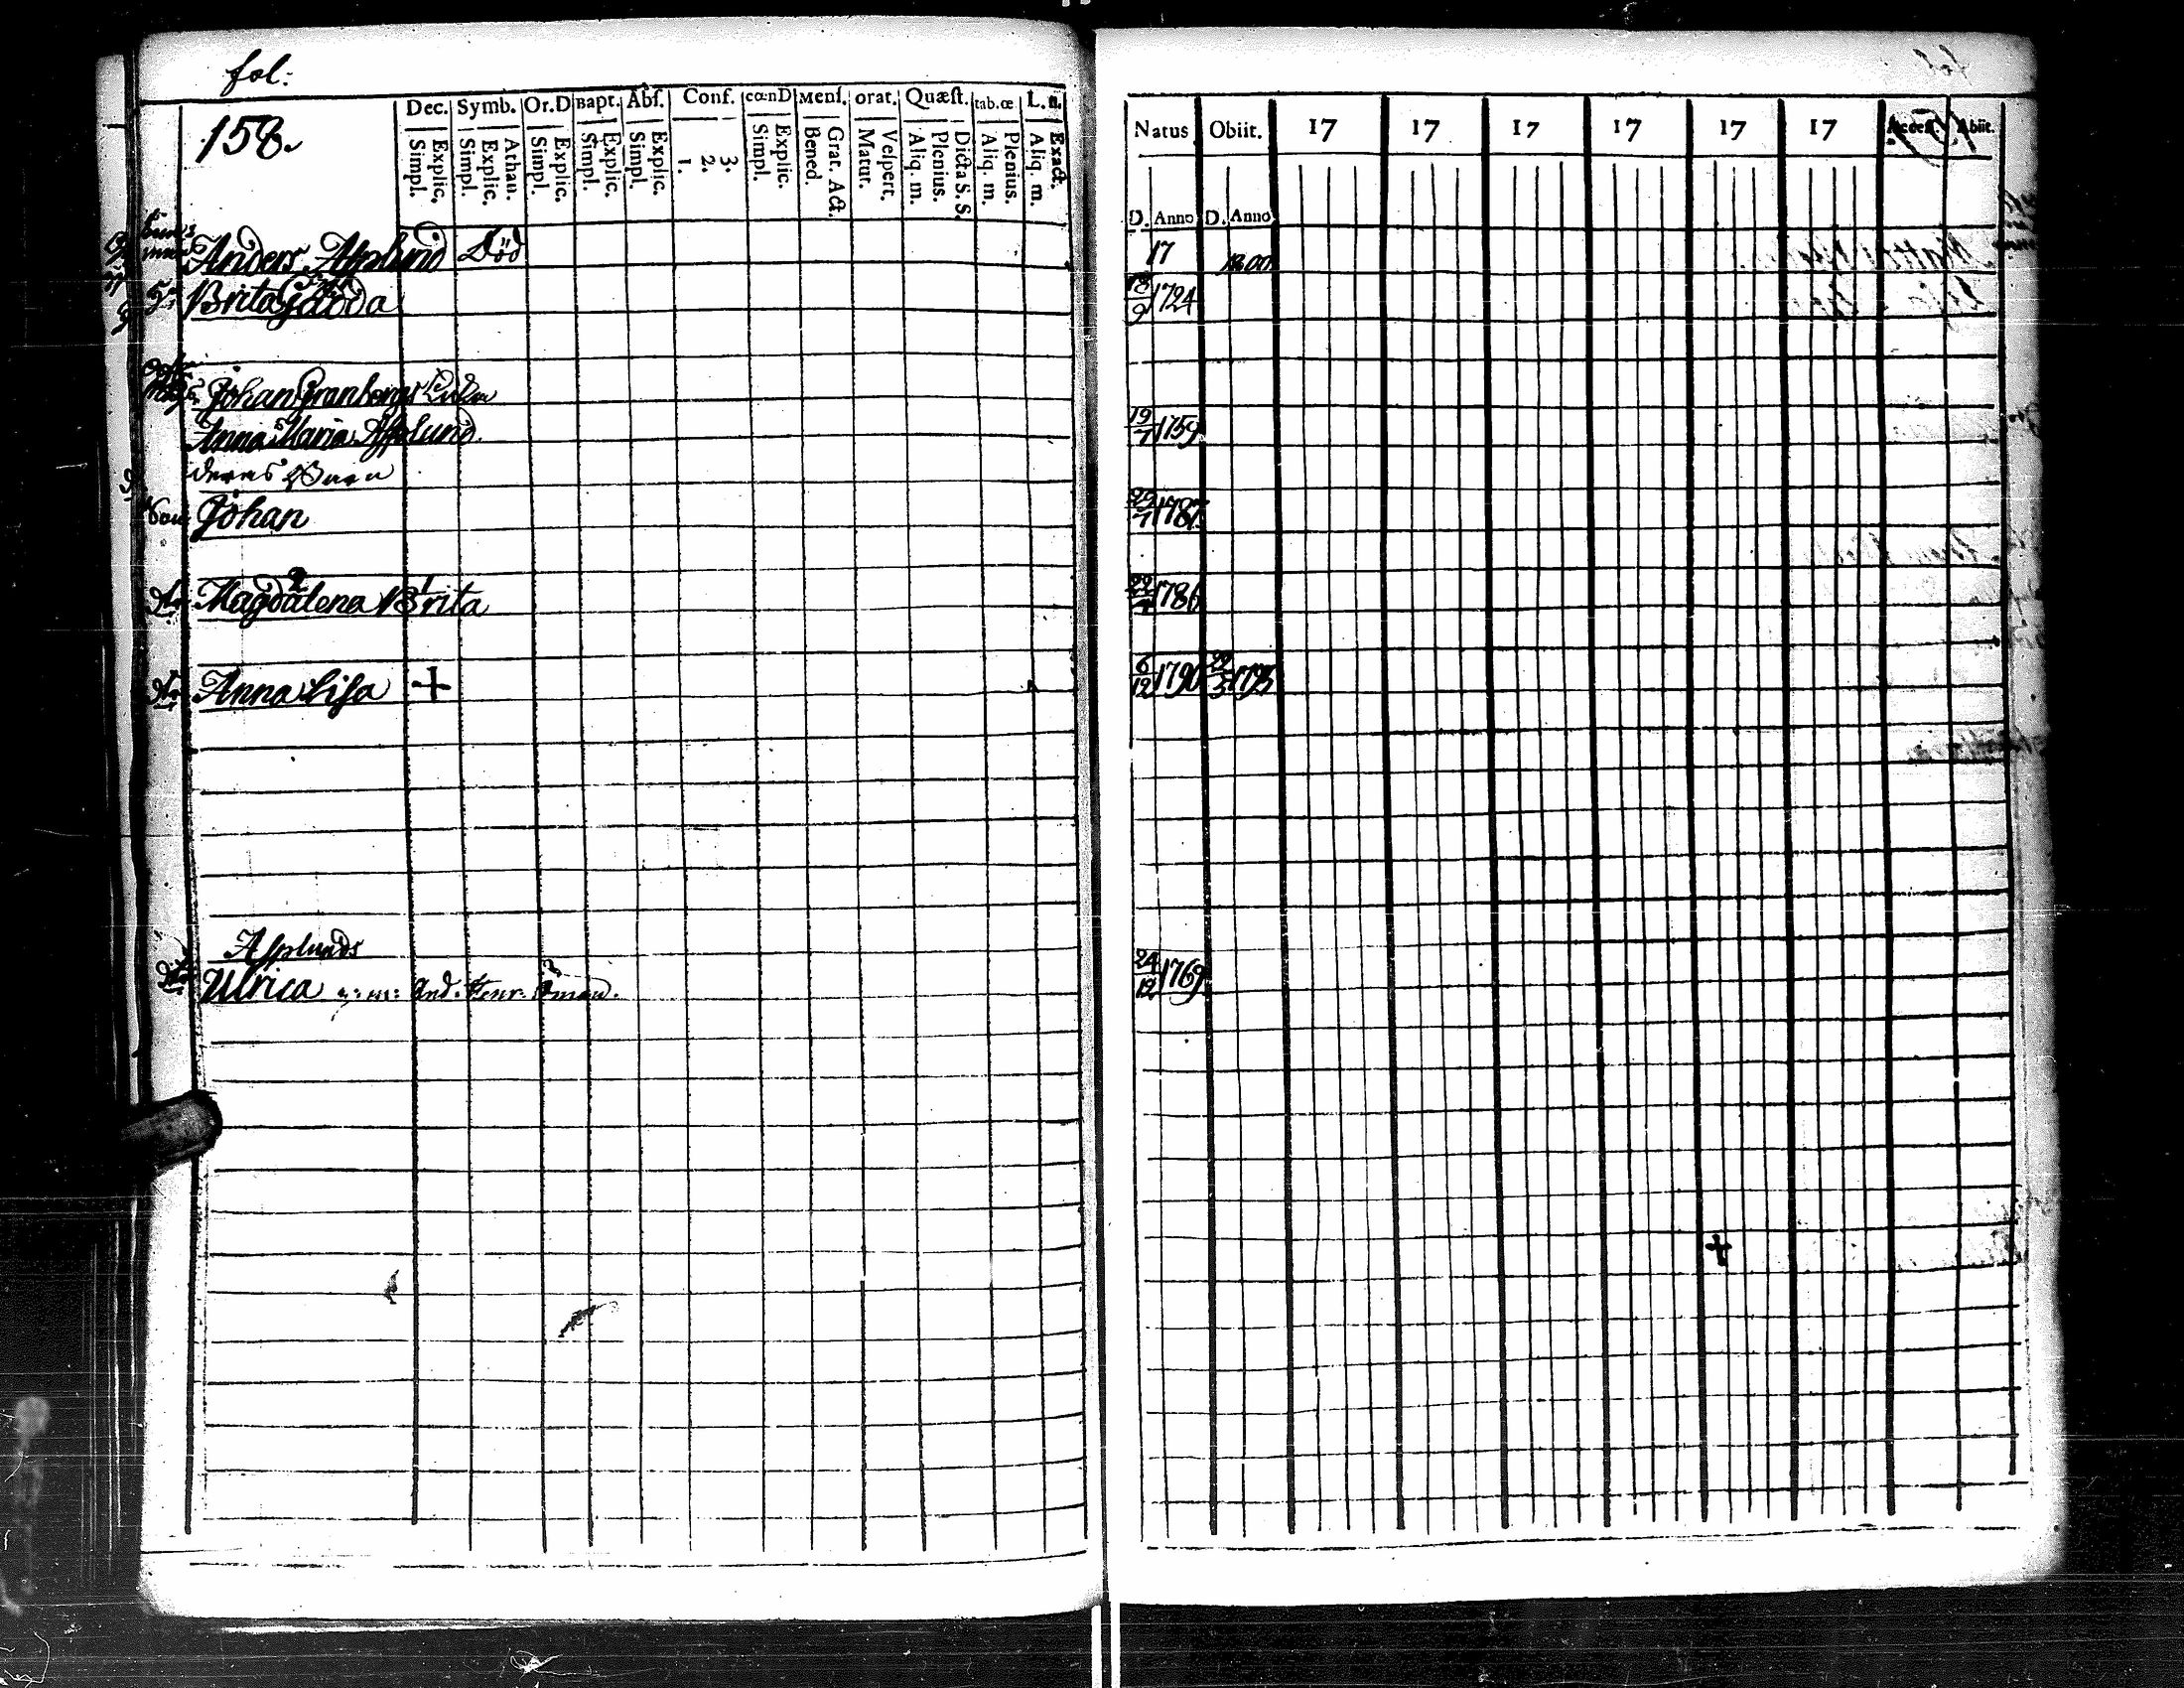 fol:
158.
Dec. Symb. Or.D Bapt. Abſ. Conf. cœnD Menſ. orat. Quæſt. tab.œ L. n.
Simpl. Explic. Simpl. Explic. Athan. Simpl. Explic. Simpl. Explic. Simpl. Explic. 1. 2. 3. Simpl. Explic. Bened. Grat. Act. Matut. Veſpert. Aliq. m. Plenius. Dicta S. S. Aliq. m. Plenius. Aliq. m. Exact.
Natus Obiit. 17 17 17 17 17 17 Acceſſ. Abiit.
D. Anno D. Anno
Anders Asplund Död 17 1800
Brita 18/9 1724
Johan Granbergs Enka
Anna Maria Asplund 19/7 1759
deras Barn
Son Johan 29/7 1787
dr Magdalena 2 Brita 1 1786
dr Anna Lisa + 6/12 1790 1795
Asplunds
dr Ulrica g: m: And: Henr: Öman. 24/12 1769
+